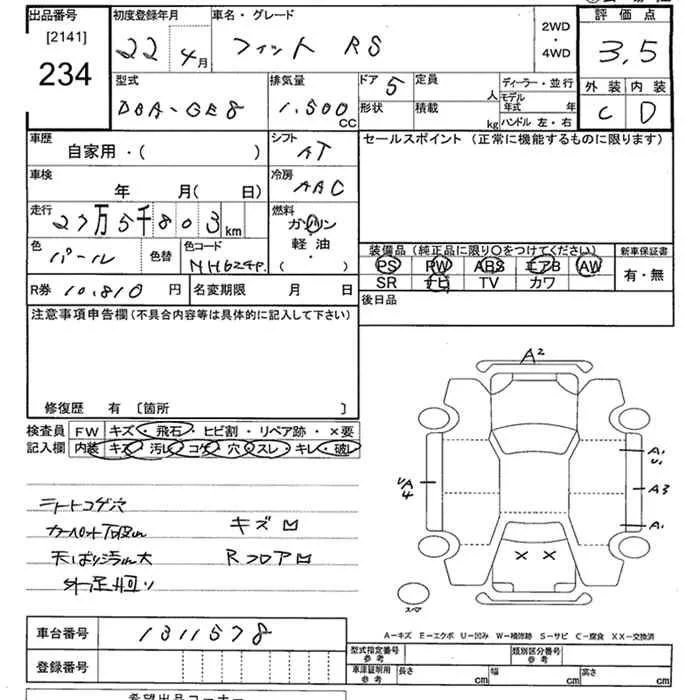 出品番号 初度登録年月 車名・グレード 2WD・4WD 評価点
[2141] 22年4月 フィット RS 3.5
234
型式 排気量 ドア 5 定員 人 ディーラー・並行 外装 内装
DBA-GE8 1,500CC 形状 積載 kg モデル年式 年 C D
ハンドル 左・右
車歴 シフト セールスポイント (正常に機能するものに限ります)
自家用・( ) AT
車検 冷房
年 月( 日) AAC
走行 燃料
27万5千803km ガソリン
軽油
・
( )
色 パール 色替 色コード NH624P
装備品 (純正品に限り○をつけてください) 新車保証書
PS PW ABS エアB AW 有・無
SR ナビ TV カワ
R券 10,810 円 名変期限 月 日 後日品
注意事項申告欄 (不具合内容等は具体的に記入して下さい)
修復歴 有 〔箇所 〕
検査員 FW キズ・飛石・ヒビ割・リペア跡・×要
記入欄 内装 キズ・汚レ・コゲ・穴・スレ・キレ・破レ
A2
A1
U1
UA
4
A3
A1
× ×
スペア
シートコゲ穴
カーペット破れ キズ凹
天ばり汚れ大 Rフロア凹
外足廻り
A-キズ E-エクボ U-凹み W-補修跡 S-サビ C-腐食 XX-交換済
車台番号 1311578
登録番号
型式指定番号 参考 類別区分番号 参考
車庫証明用 参考 長さ cm 幅 cm 高さ cm
希望出品コーナー